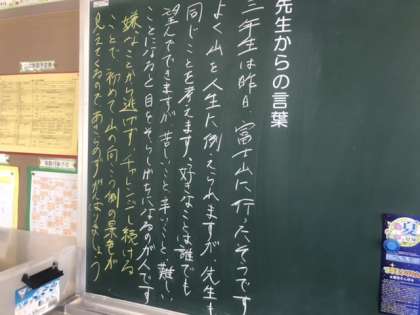 先生からの言葉
三年生は昨日、富士山に行ったそうです
よく山を人生に例えられますが、先生も
同じことを考えます。好きなことは誰でも
望んでできますが、苦しいこと、辛いこと、難しい
ことになると目をそらしがちになるのが人です
嫌なことから逃げず、チャレンジし続ける
ことで、初めて山の向こう側の景色が
見えてくるので、あきらめずがんばりましょう
夏